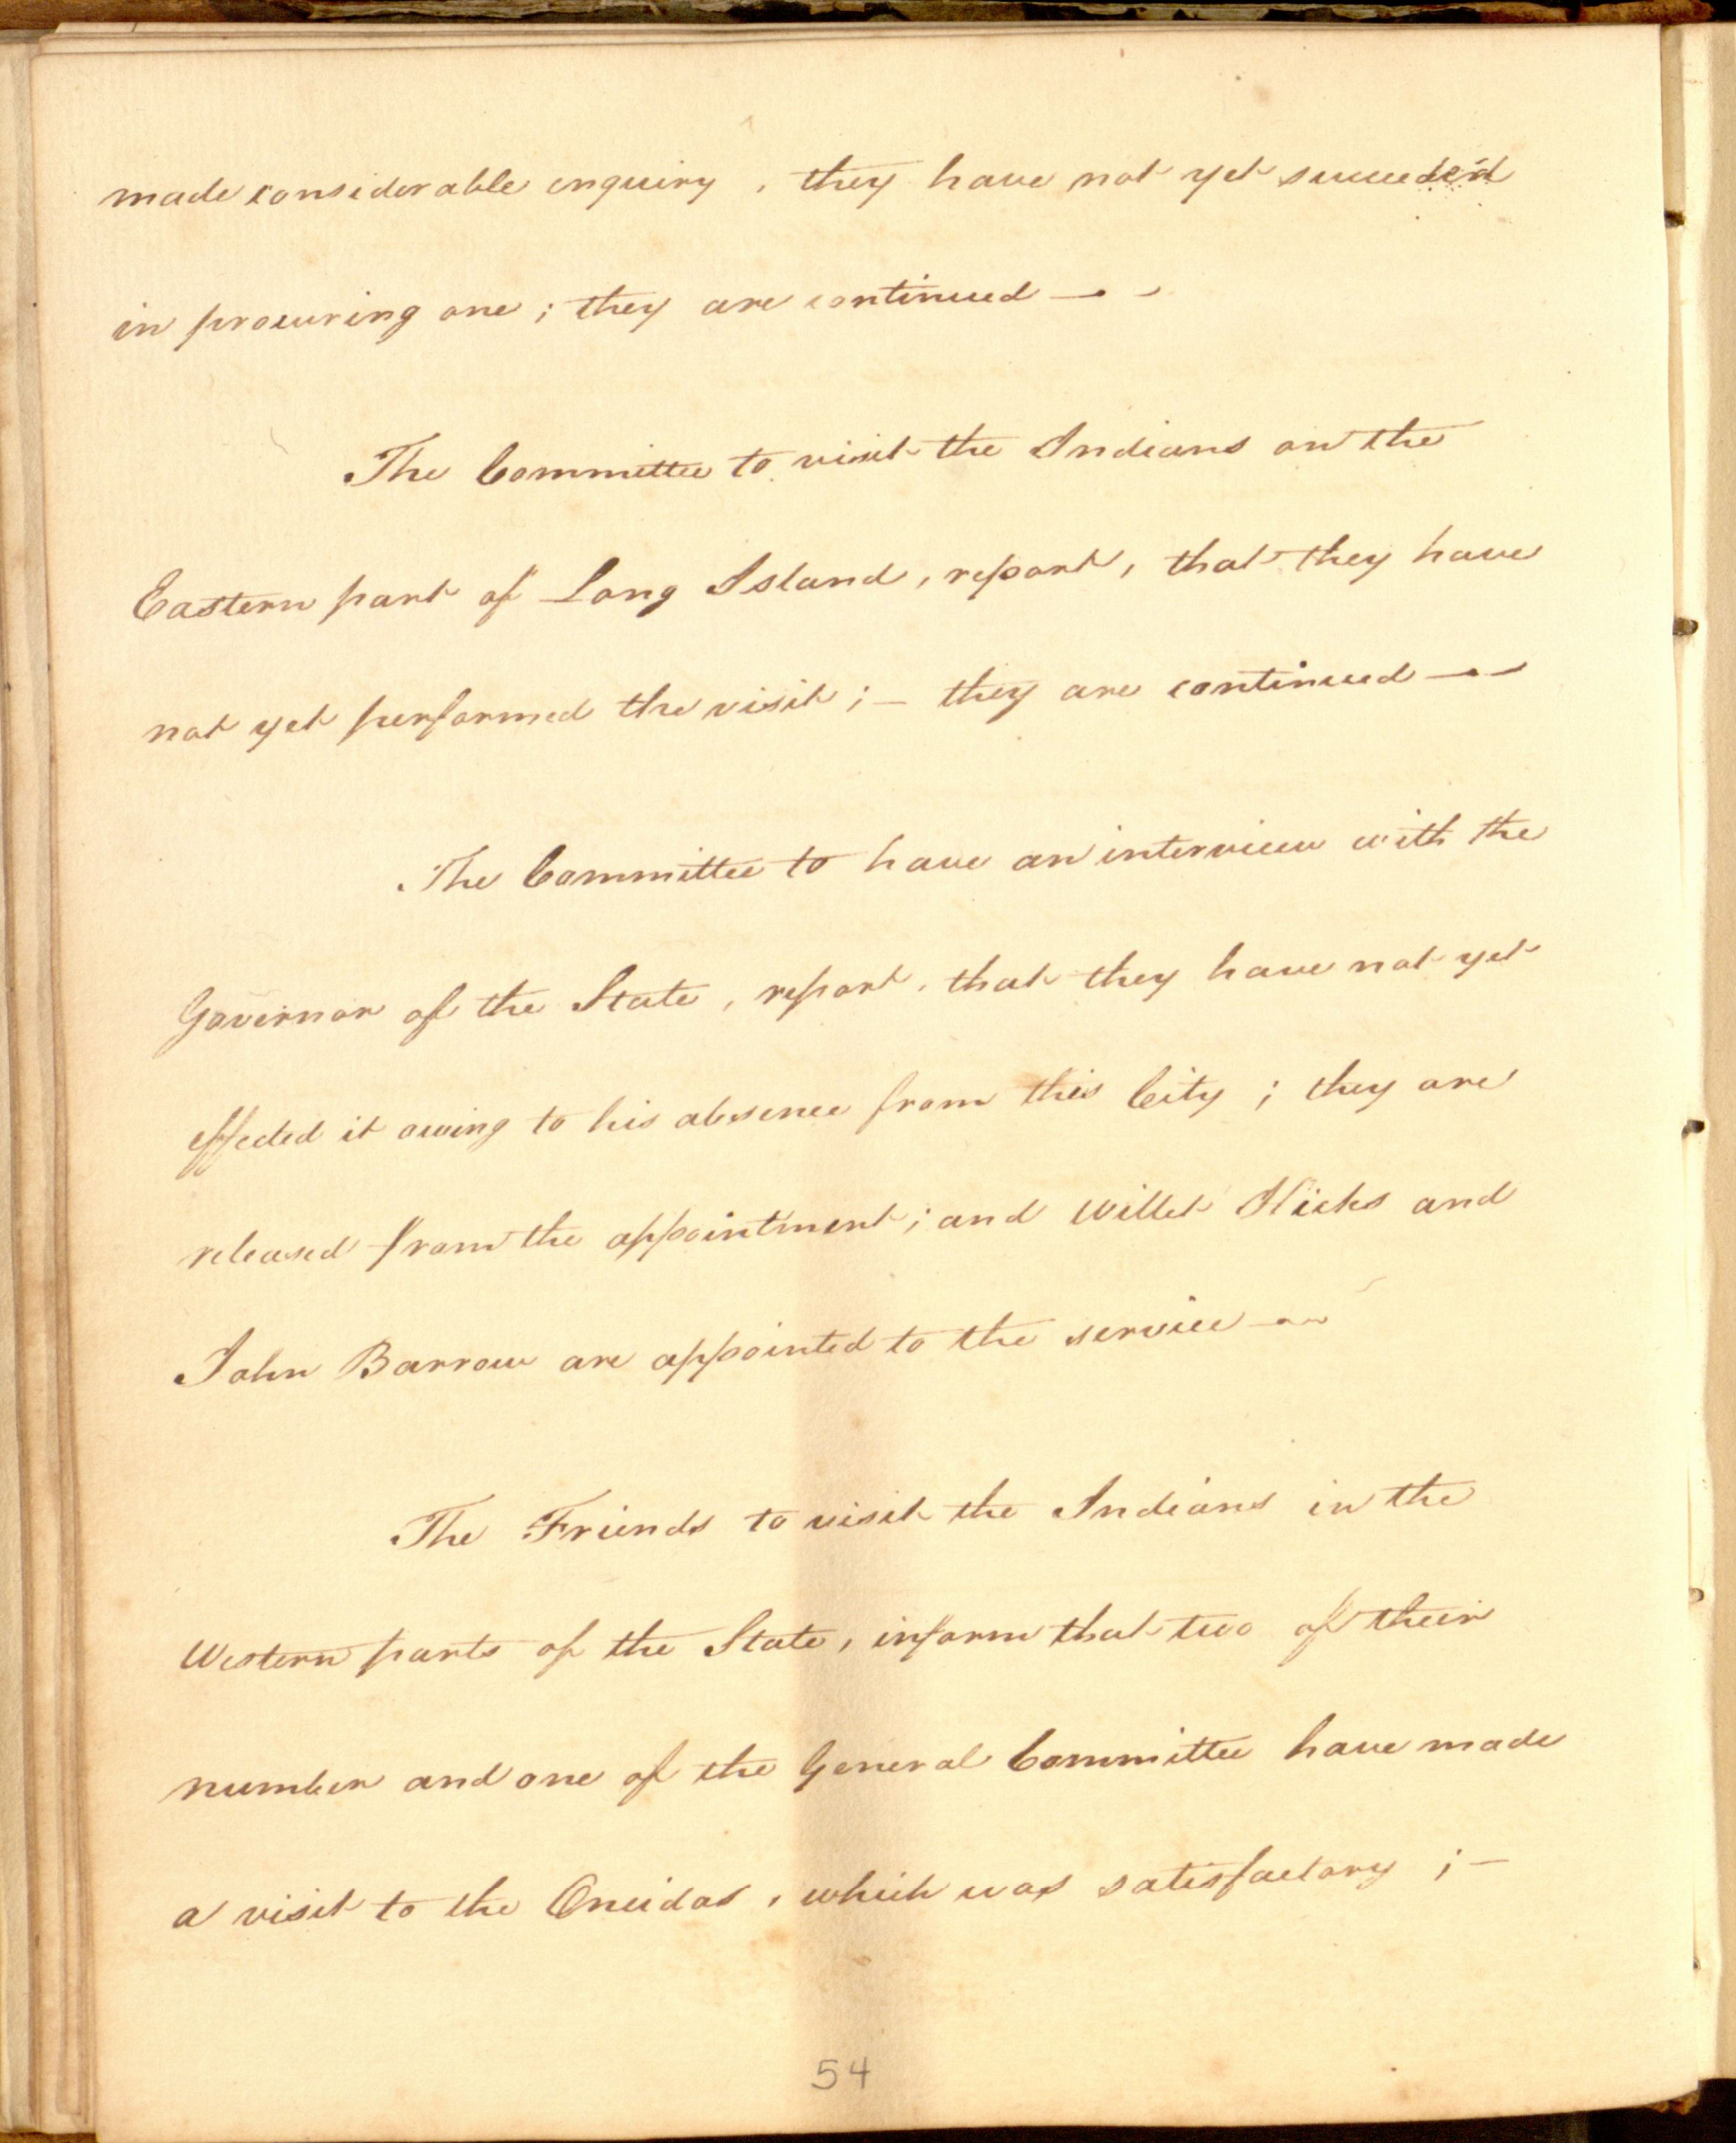 made considerable enquiry, they have not yet succeded
in procuring one; they are continued —
The Committee to visit the Indians on the
Eastern part of Long Island, report, that they have
not yet performed the visit; — they are continued —
The Committee to have an interview with the
Governor of the State, report, that they have not yet
effected it owing to his absence from this City; they are
released from the appointment; and Willet Hicks and
John Barrow are appointed to the service —
The Friends to visit the Indians in the
Western parts of the State, inform that two of their
number and one of the General Committee have made
a visit to the Oneidas, which was satisfactory; —
54